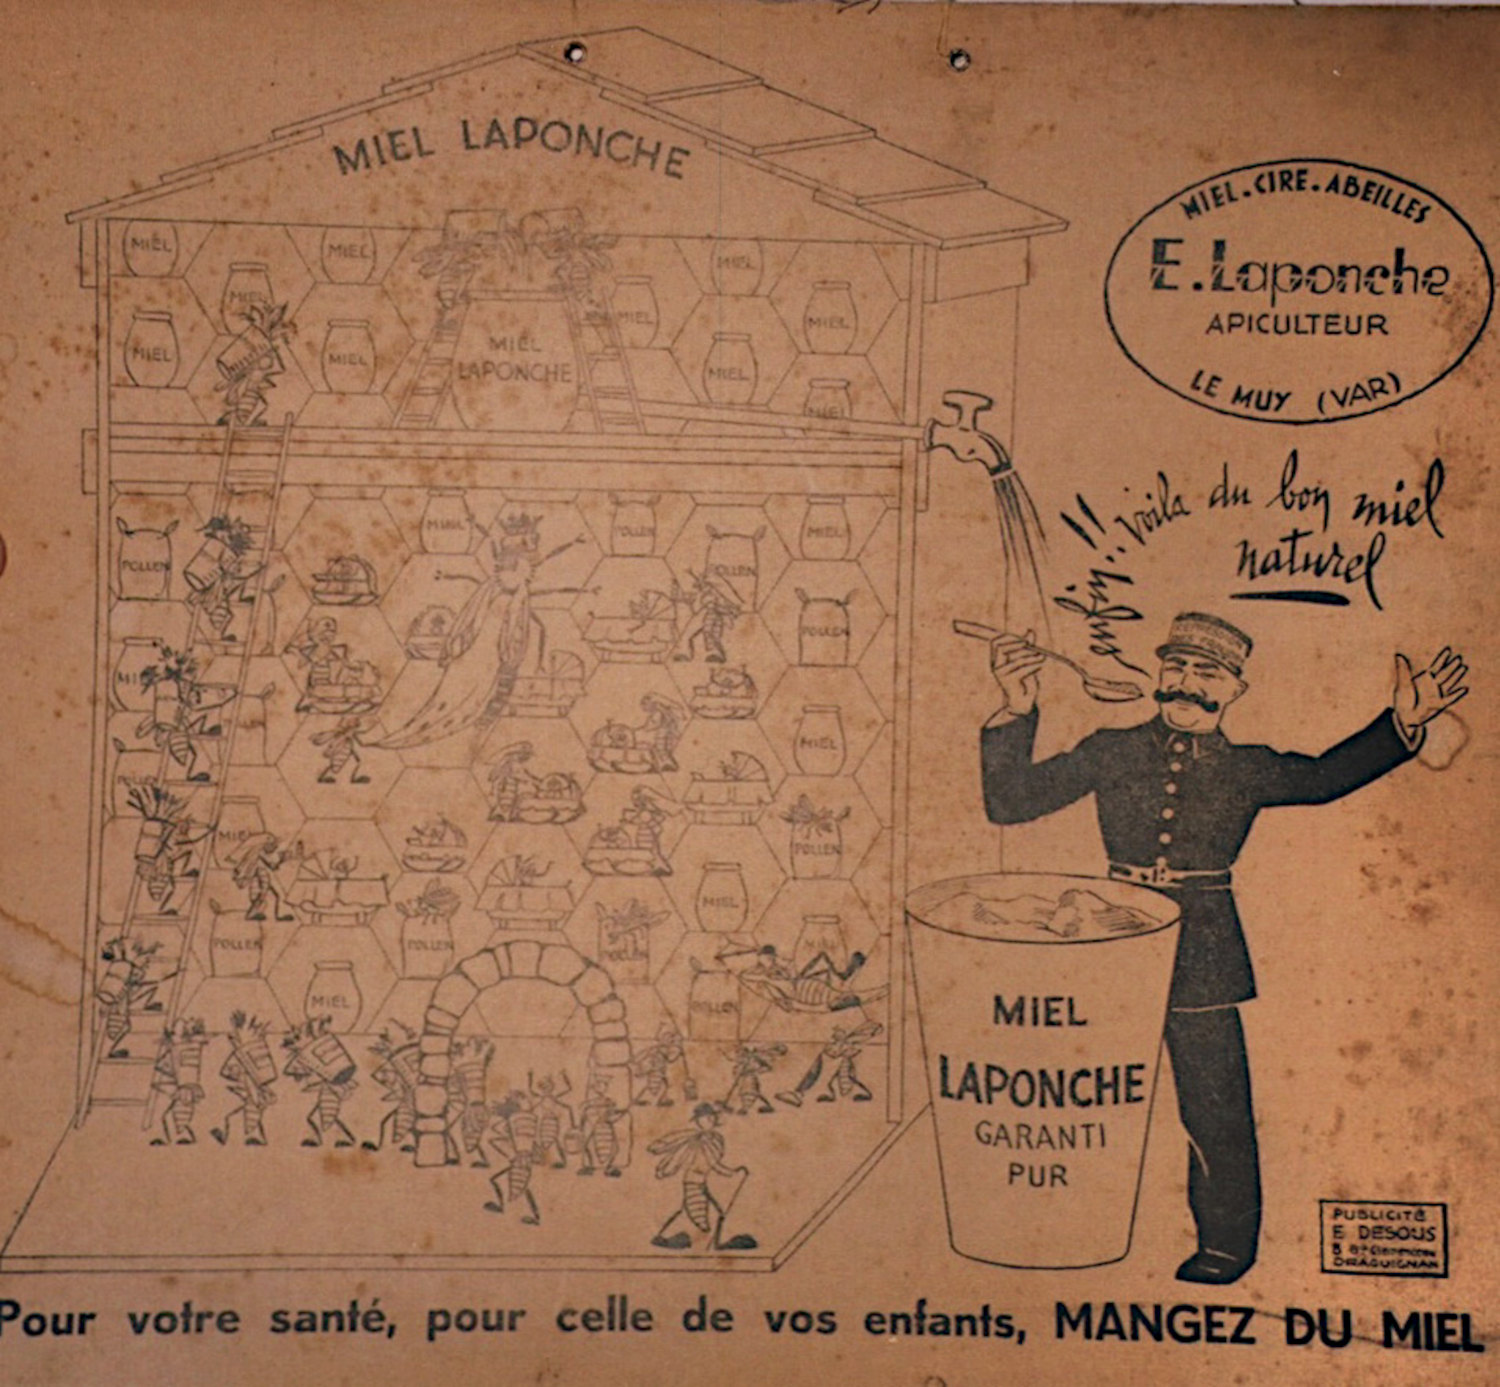 MIEL LAPONCHE
MIEL.CIRE.ABEILLES
E.Laponche
APICULTEUR
LE MUY (VAR)
MIEL
MIEL
MIEL
MIEL
MIEL
MIEL
MIEL
MIEL
MIEL
MIEL
MIEL
MIEL
LAPONCHE
voila du bon miel
naturel
POLLEN
MIEL
POLLEN
MIEL
POLLEN
POLLEN
MIEL
POLLEN
MIEL
MIEL
POLLEN
MIEL
POLLEN
POLLEN
POLLEN
MIEL
POLLEN
MIEL
MIEL
LAPONCHE
GARANTI
PUR
PUBLICITÉ
E DESOUS
DRAGUIGNAN
Pour votre santé, pour celle de vos enfants, MANGEZ DU MIEL